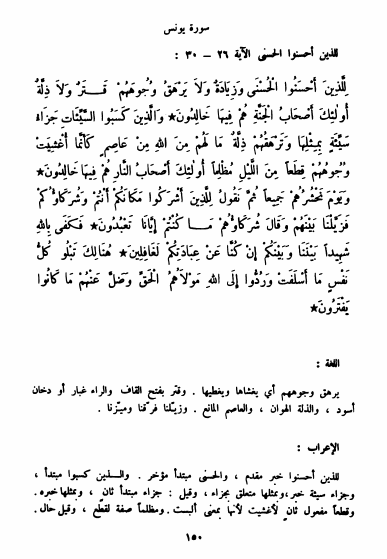 سورة يونس
للذين أحسنوا الحسنى الآية ٢٦ – ٣٠ :
لِلَّذِينَ أَحْسَنُوا الْحُسْنَى وَزِيَادَةٌ وَلَا يَرْهَقُ وُجُوهَهُمْ قَتَرٌ وَلَا ذِلَّةٌ
أُولَئِكَ أَصْحَابُ الْجَنَّةِ هُمْ فِيهَا خَالِدُونَ★ وَالَّذِينَ كَسَبُوا السَّيِّئَاتِ جَزَاءُ
سَيِّئَةٍ بِمِثْلِهَا وَتَرْهَقُهُمْ ذِلَّةٌ مَا لَهُمْ مِنَ اللهِ مِنْ عَاصِمٍ كَأَنَّمَا أُغْشِيَتْ
وُجُوهُهُمْ قِطَعاً مِنَ اللَّيْلِ مُظْلِماً أُولَئِكَ أَصْحَابُ النَّارِ هُمْ فِيهَا خَالِدُونَ★
وَيَوْمَ نَحْشُرُهُمْ جَمِيعاً ثُمَّ نَقُولُ لِلَّذِينَ أَشْرَكُوا مَكَانَكُمْ أَنْتُمْ وَشُرَكَاؤُكُمْ
فَزَيَّلْنَا بَيْنَهُمْ وَقَالَ شُرَكَاؤُهُمْ مَا كُنْتُمْ إِيَّانَا تَعْبُدُونَ★ فَكَفَى بِاللهِ
شَهِيداً بَيْنَنَا وَبَيْنَكُمْ إِنْ كُنَّا عَنْ عِبَادَتِكُمْ لَغَافِلِينَ★ هُنَالِكَ تَبْلُو كُلُّ
نَفْسٍ مَا أَسْلَفَتْ وَرُدُّوا إِلَى اللهِ مَوْلَاهُمُ الْحَقِّ وَضَلَّ عَنْهُمْ مَا كَانُوا
يَفْتَرُونَ★
اللغة :
يرهق وجوههم أي يغشاها ويغطيها . وقتر بفتح القاف والراء غبار أو دخان
أسود ، والذلة الهوان ، والعاصم المانع . وزيّلنا فرّقنا وميّزنا .
الإعراب :
للذين أحسنوا خبر مقدم ، والحسنى مبتدأ مؤخر . والـذين كسبوا مبتدأ ،
وجزاء سيئة خبر،وبمثلها متعلق بجزاء ، وقيل : جزاء مبتدأ ثانٍ ، وبمثلها خبره .
وقطعاً مفعول ثانٍ لأغشيت لأنها بمعنى ألبست . ومظلماً صفة لقطع ، وقيل حال .
١٥٠